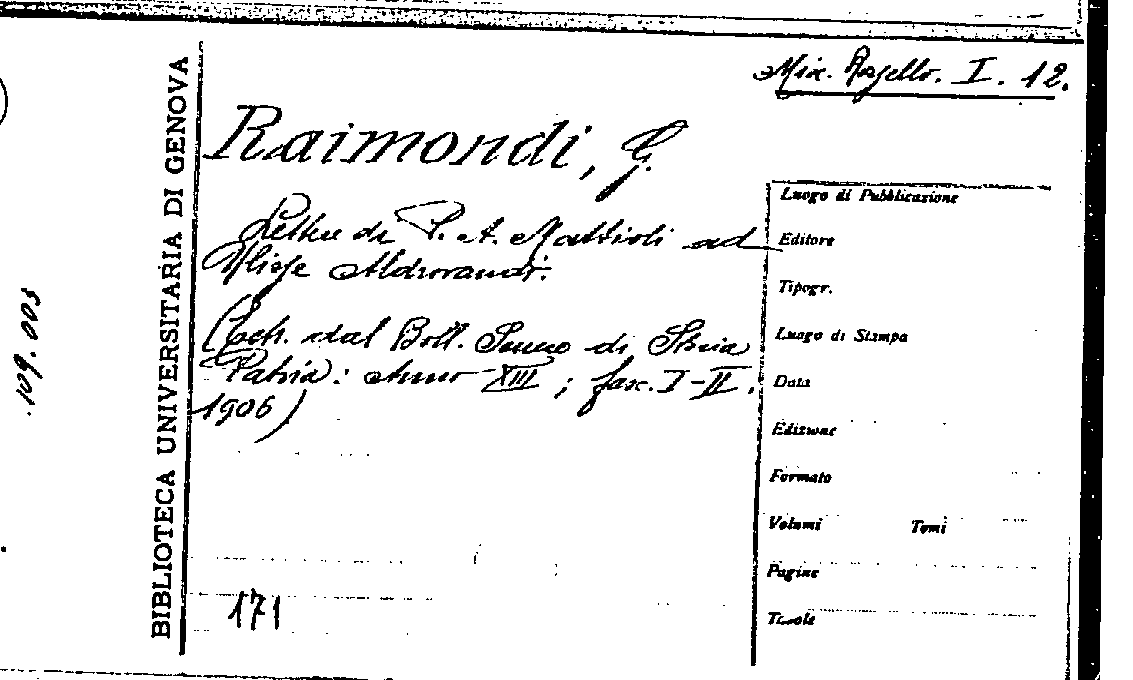 BIBLIOTECA UNIVERSITARIA DI GENOVA
109.003
Mix. Rosello. I. 12.
Raimondi, G.
Lettere di P. A. Mattioli ad
Ulisse Aldrovandi.
(Estr. dal Boll. Senese di Storia
Patria: Anno XIII; fasc. I-II.
1906)
171
Luogo di Pubblicazione
Editore
Tipogr.
Luogo di Stampa
Data
Edizione
Formato
Volumi Tomi
Pagine
Tavole